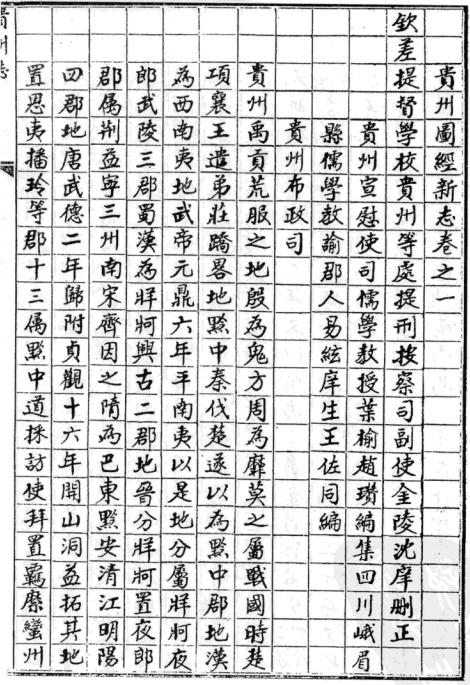 貴州圖經新志卷之一
欽差提督學校貴州等處提刑按察司副使金陵沈庠刪正
貴州宣慰使司儒學教授葉榆趙瓚編集四川峨眉
縣儒學教諭郡人易絃庠生王佐同編
貴州布政司
貴州禹貢荒服之地殷為鬼方周為靡莫之屬戰國時楚
項襄王遣弟莊蹻畧地黔中秦伐楚遂以為黔中郡地漢
為西南夷地武帝元鼎六年平南夷以是地分屬牂牁夜
郎武陵三郡蜀漢為牂牁興古二郡地晉分牂牁置夜郎
郡属荆益寧三州南宋齊因之隋為巴東黔安清江明陽
四郡地唐武德二年歸附貞觀十六年開山洞益拓其地
置思夷播玲等郡十三属黔中道採訪使拜置羈縻蠻州